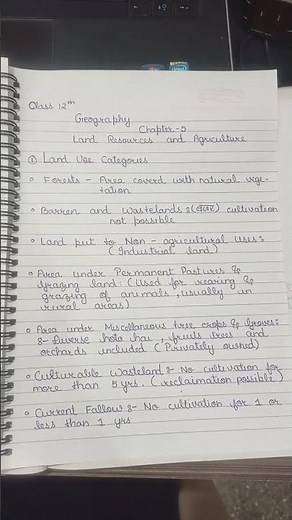 Class 12th
Geography
Chapter-5
Land Resources and Agriculture
① Land Use Categories
∘ Forests - Area coverd with natural vege-
tation
∘ Barren and Wastelands :(बंजर) cultivation
not possible
∘ Land put to Non-agricultural Uses:
(Industrial land)
∘ Area under Permanent Pastures &
Grazing land: (Used for rearing &
grazing of animals, usually in
rural areas)
∘ Area under Miscellaneous tree crops & Groves:
:- Diverse hota hai, fruits trees and
orchards included (Privately owned)
∘ Culturable Wasteland :- No cultivation for
more than 5 yrs. (reclaimation possible)
∘ Current Fallow :- No cultivation for 1 or
less than 1 yrs